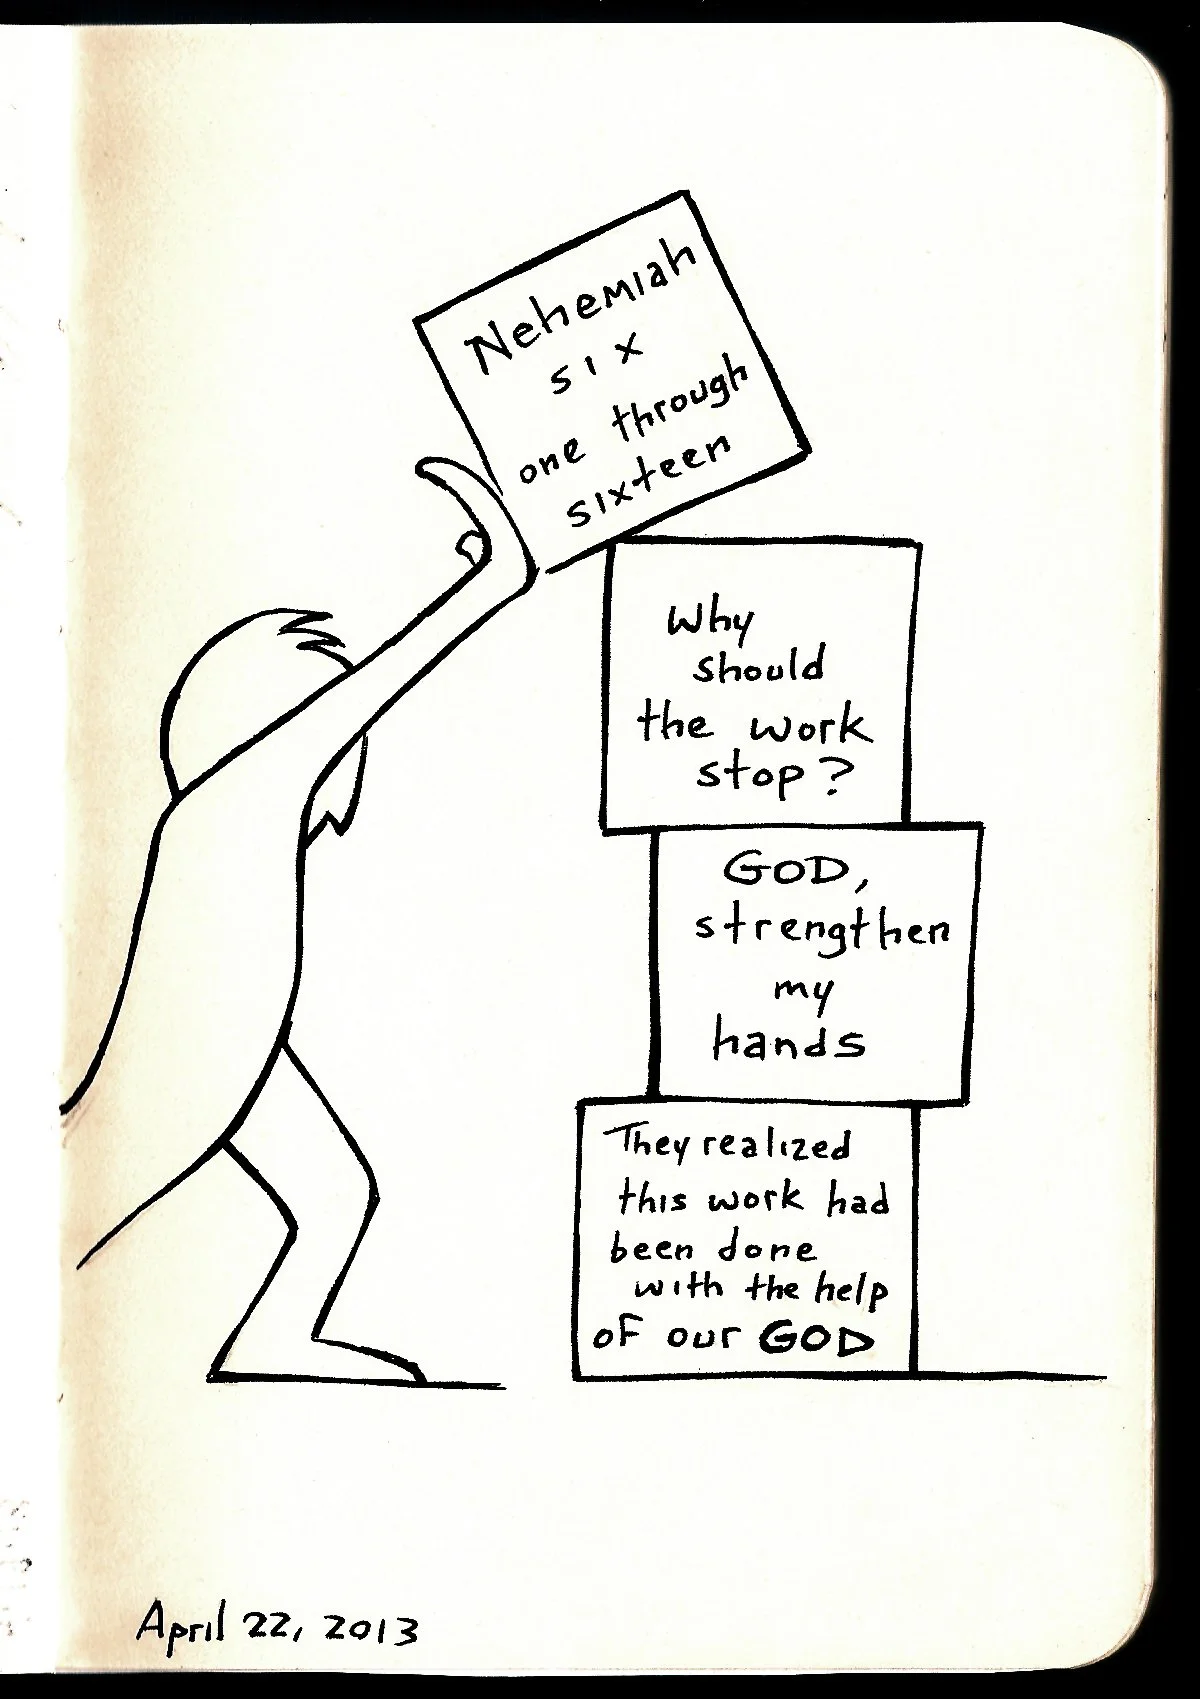 Nehemiah
six
one through
sixteen
Why
should
the work
stop?
GOD,
strengthen
my
hands
They realized
this work had
been done
with the help
of our GOD
April 22, 2013